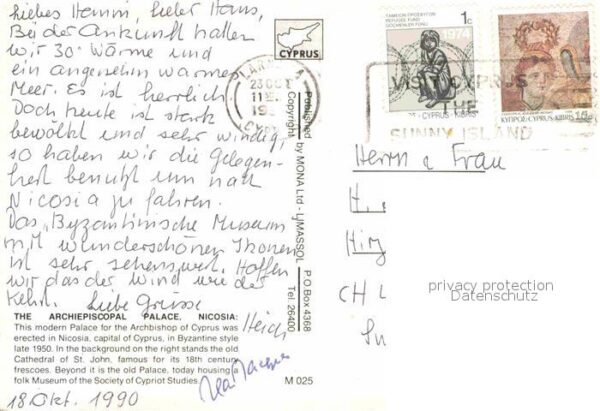 Liebes Hemmi, lieber Hans,
Bei der Ankunft hatten
wir 30° Wärme und
ein angenehm warmes
Meer. Es ist herrlich
Doch heute ist stark
bewölkt und sehr windig,
so haben wir die Gelegen-
heit benutzt um nach
Nicosia zu fahren.
Das Byzantinische Museum
mit wunderschönen Ikonen
ist sehr sehenswert. Hoffen
wir das der Wind wieder
kehrt. Liebe Grüsse
THE ARCHIEPISCOPAL PALACE, NICOSIA:
This modern Palace for the Archbishop of Cyprus was
erected in Nicosia, capital of Cyprus, in Byzantine style
late 1950. In the background on the right stands the old
Cathedral of St. John, famous for its 18th century
frescoes. Beyond it is the old Palace, today housing a
folk Museum of the Society of Cypriot Studies.
M 025
18. Okt. 1990
CYPRUS
Published by MONA Ltd - LIMASSOL P O Box 4368
Copyright Tel. 26400
LARNACA
23 OCT
CYPRUS
1c
1974
15c
ΚΥΠΡΟΣ-CYPRUS-KIBRIS
VISIT CYPRUS
THE
SUNNY ISLAND
Herrn & Frau
H.
CH
privacy protection
Datenschutz